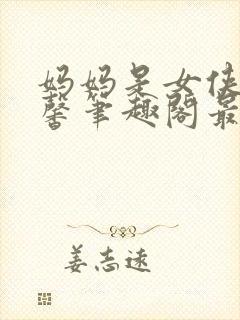 妈妈是女侠
馨笔趣阁最
姜志远